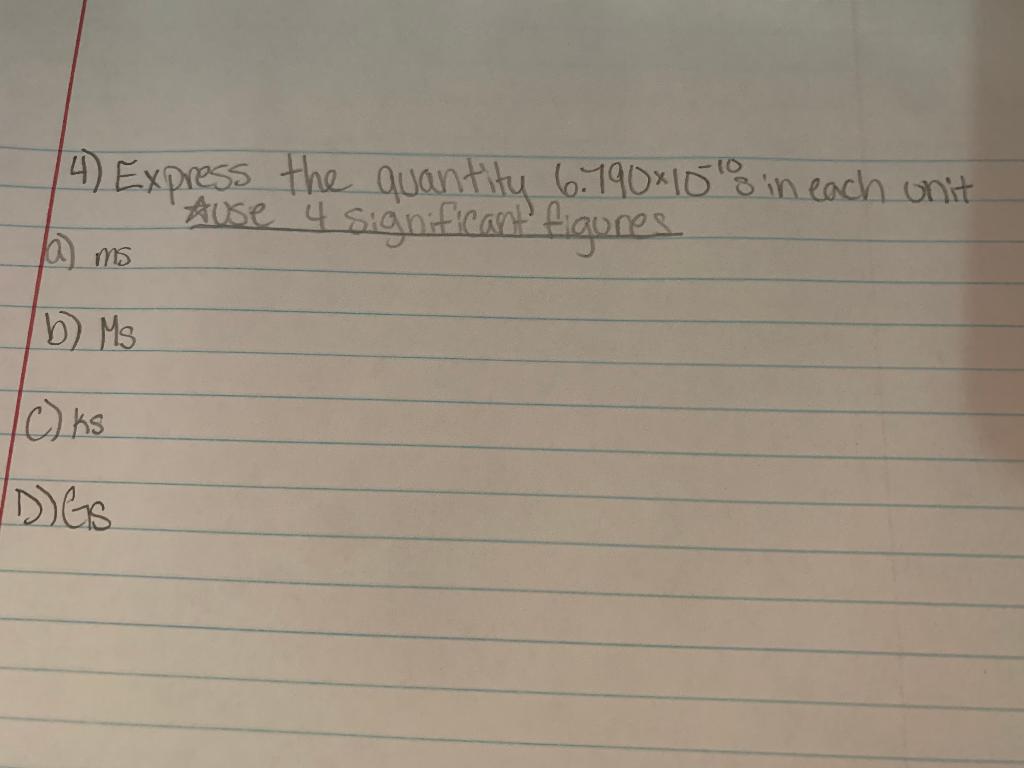 4) Express the quantity 6.790×10⁻¹⁰s in each unit
☆use 4 significant figures
a) ms
b) Ms
C) ks
D) Gs